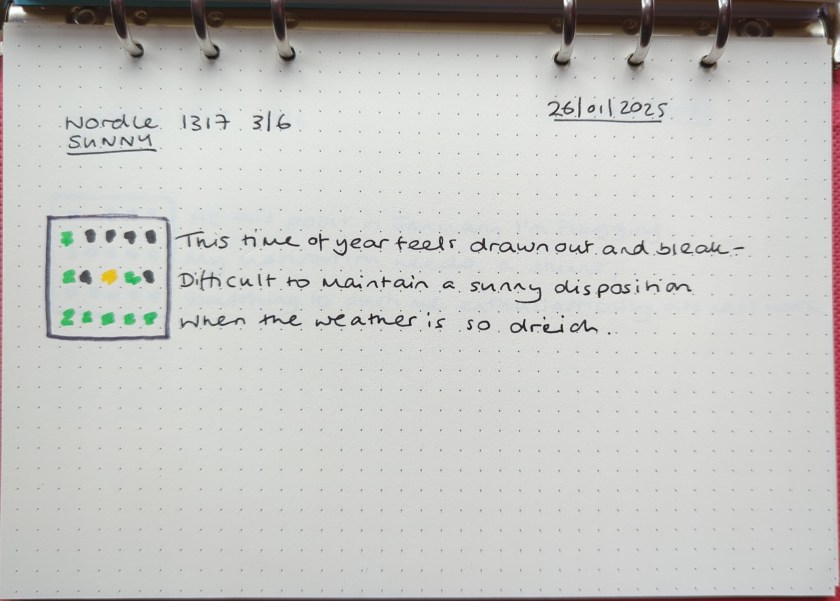 Wordle 1317 3/6
26/01/2025
SUNNY
This time of year feels drawn out and bleak -
Difficult to maintain a sunny disposition
When the weather is so dreich.